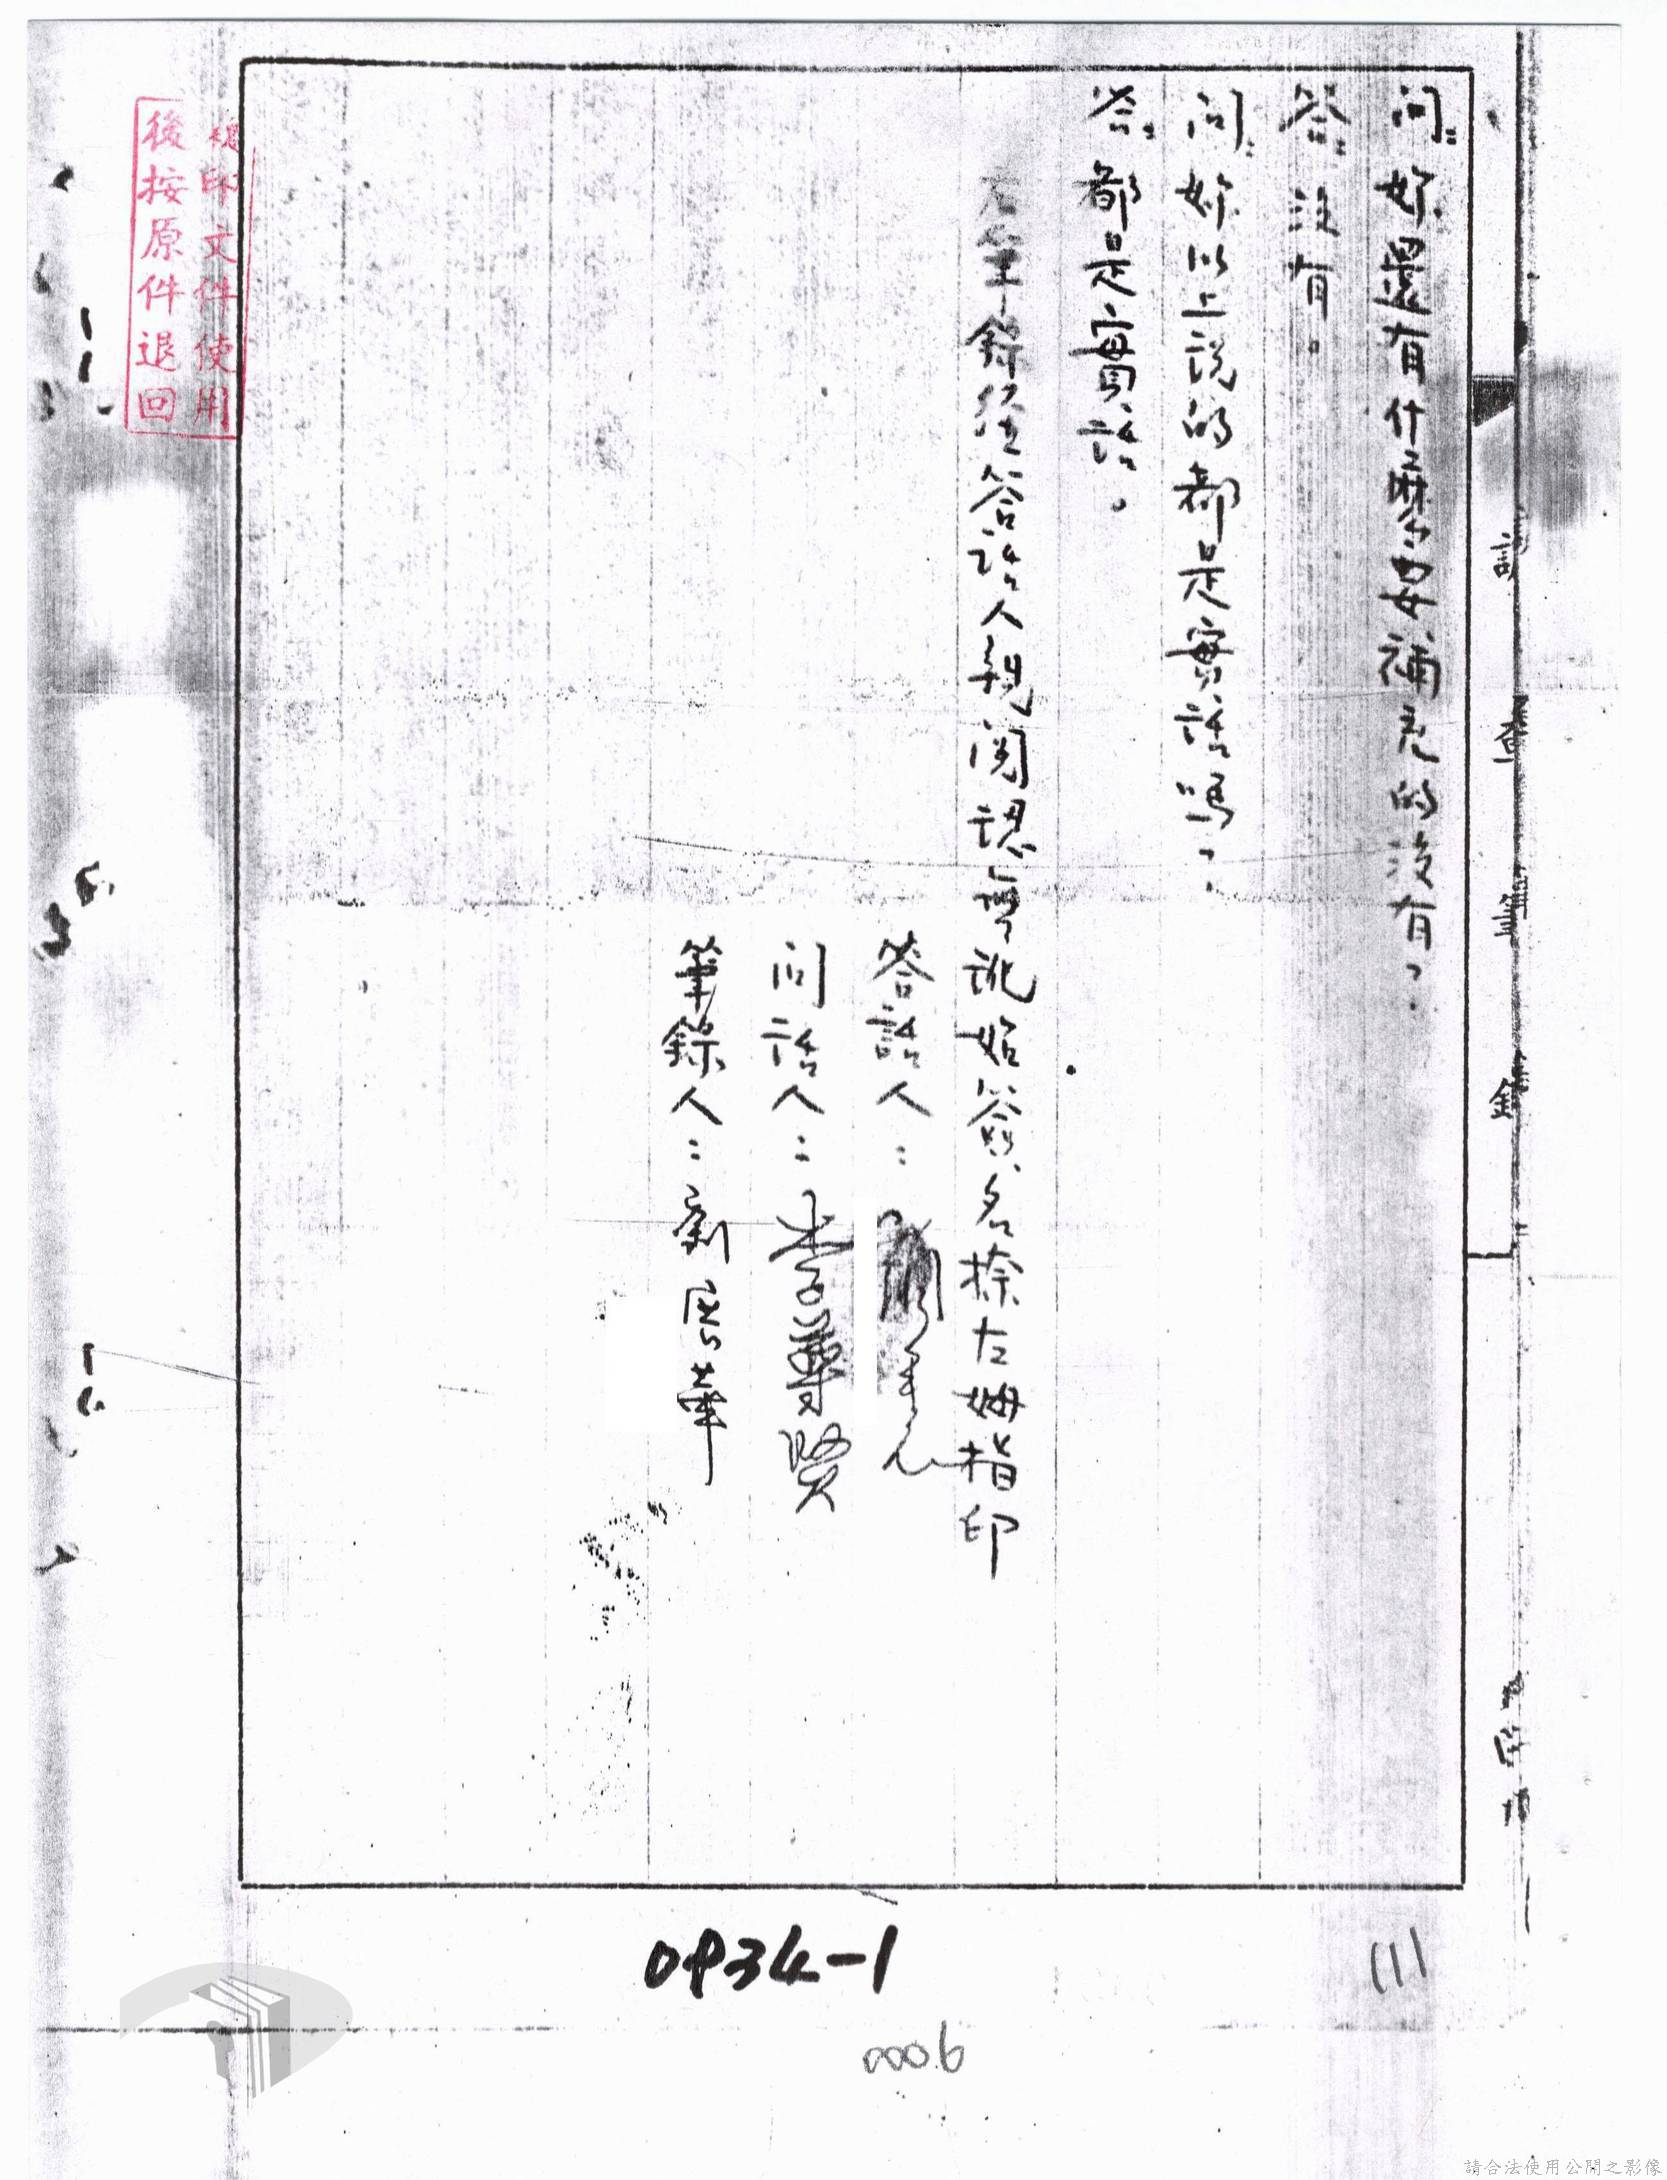 調查筆錄
問：妳還有什麼要補充的沒有？
答：沒有。
問：妳以上說的都是實話嗎？
答：都是實話。
右筆錄經答話人親閱認無訛始簽名捺左姆指印
答話人：
問話人：李葦賢
筆錄人：劉展華
複印文件使用
後按原件退回
0934-1
111
0006
請合法使用公開之影像